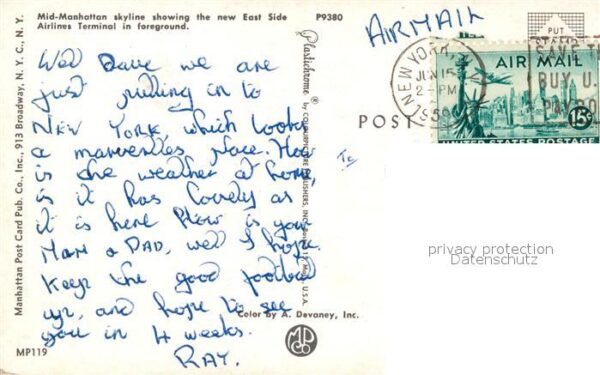 Mid-Manhattan skyline showing the new East Side
Airlines Terminal in foreground.
P9380
AIRMAIL
Well Dave we are
just pulling in to
NEW YORK, which looks
a marvelles place. How
is the weather at home,
is it has lovely as
it is here How is your
MAM & DAD, well I hope.
Keep the good football
up, and hope to see
you in 4 weeks.
RAY.
To
Manhattan Post Card Pub. Co., Inc., 913 Broadway, N. Y. C., N. Y.
Plastichrome ® by COLOURPICTURE PUBLISHERS, INC., Mass., U.S.A.
POST
PUT
NEW YORK
JUN 15
2 - PM
195
BUY U.
AIR MAIL
15¢
UNITED STATES POSTAGE
privacy protection
Datenschutz
Color by A. Devaney, Inc.
MPC
MP119